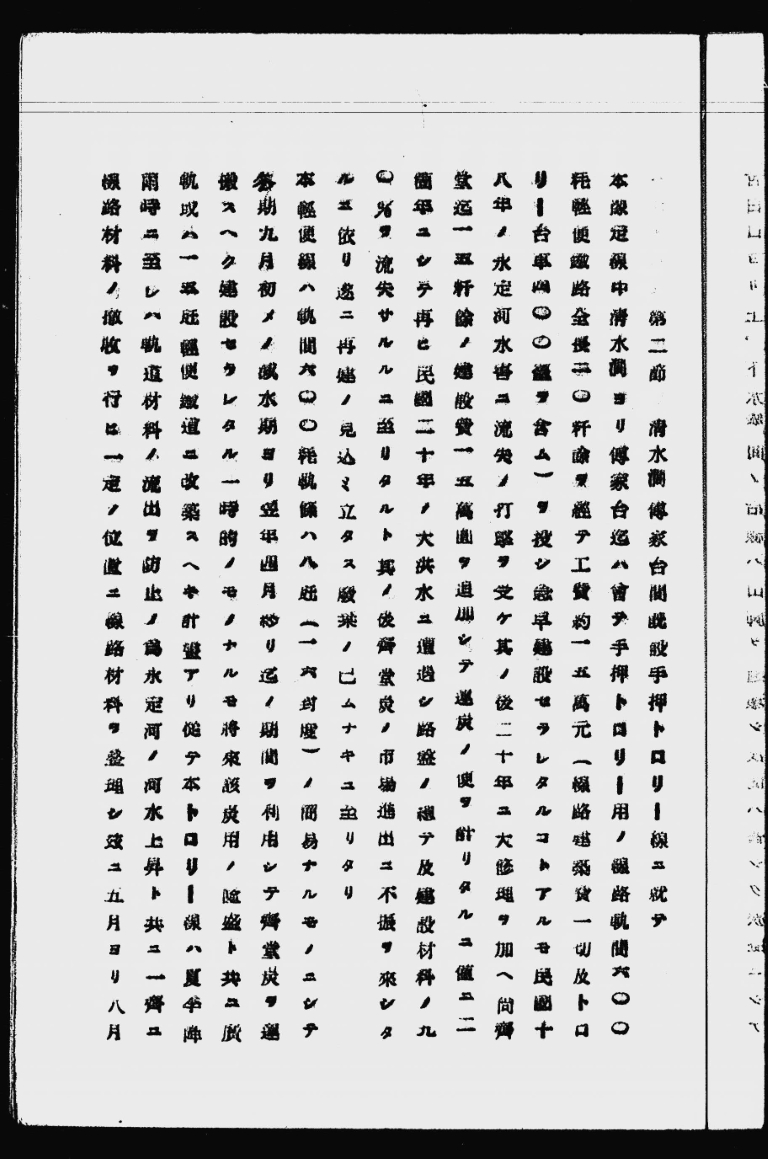 第二節　清水澗傅家台間既設手押トロリー線ニ就テ
本設定線中清水澗ヨリ傅家台迄ハ曾テ手押トロリー用ノ線路軌間六〇〇
粍軽便鐵路全長二〇粁餘ヲ經テ工費約一五萬元（線路建築費一切及トロ
リー台車四〇〇輛ヲ含ム）ヲ投シ急早建設セラレタルコトアルモ民國十
八年ノ永定河水害ニ流失ノ打撃ヲ受ケ其ノ後二十年ニ大修理ヲ加ヘ尚齊
堂迄一五粁餘ノ建設費一五萬圓ヲ追加シテ運炭ノ便ヲ計リタルニ僅ニ二
箇年ニシテ再ヒ民國二十年ノ大洪水ニ遭遇シ路盤ノ總テ及建設材料ノ九
〇％ヲ流失サルルニ至リタルト其ノ後齊堂炭ノ市場進出ニ不振ヲ來シタ
ルニ依リ遂ニ再建ノ見込ミ立タス廢業ノ已ムナキニ至リタリ
本輕便線ハ軌間六〇〇粍軌條ハ八瓩（一六封度）ノ簡易ナルモノニシテ
冬期九月初メノ減水期ヨリ翌年四月終リ迄ノ期間ヲ利用シテ齊堂炭ヲ運
搬スヘク建設セラレタル一時的ノモノナルモ將來該炭用ノ隆盛ト共ニ廣
軌或ハ一五瓩輕便鐵道ニ改築スヘキ計畫アリ從テ本トロリー線ハ夏季降
雨時ニ至レハ軌道材料ノ流出ヲ防止ノ爲永定河ノ河水上昇ト共ニ一齊ニ
線路材料ノ撤收ヲ行ヒ一定ノ位置ニ線路材料ヲ整理シ玆ニ五月ヨリ八月